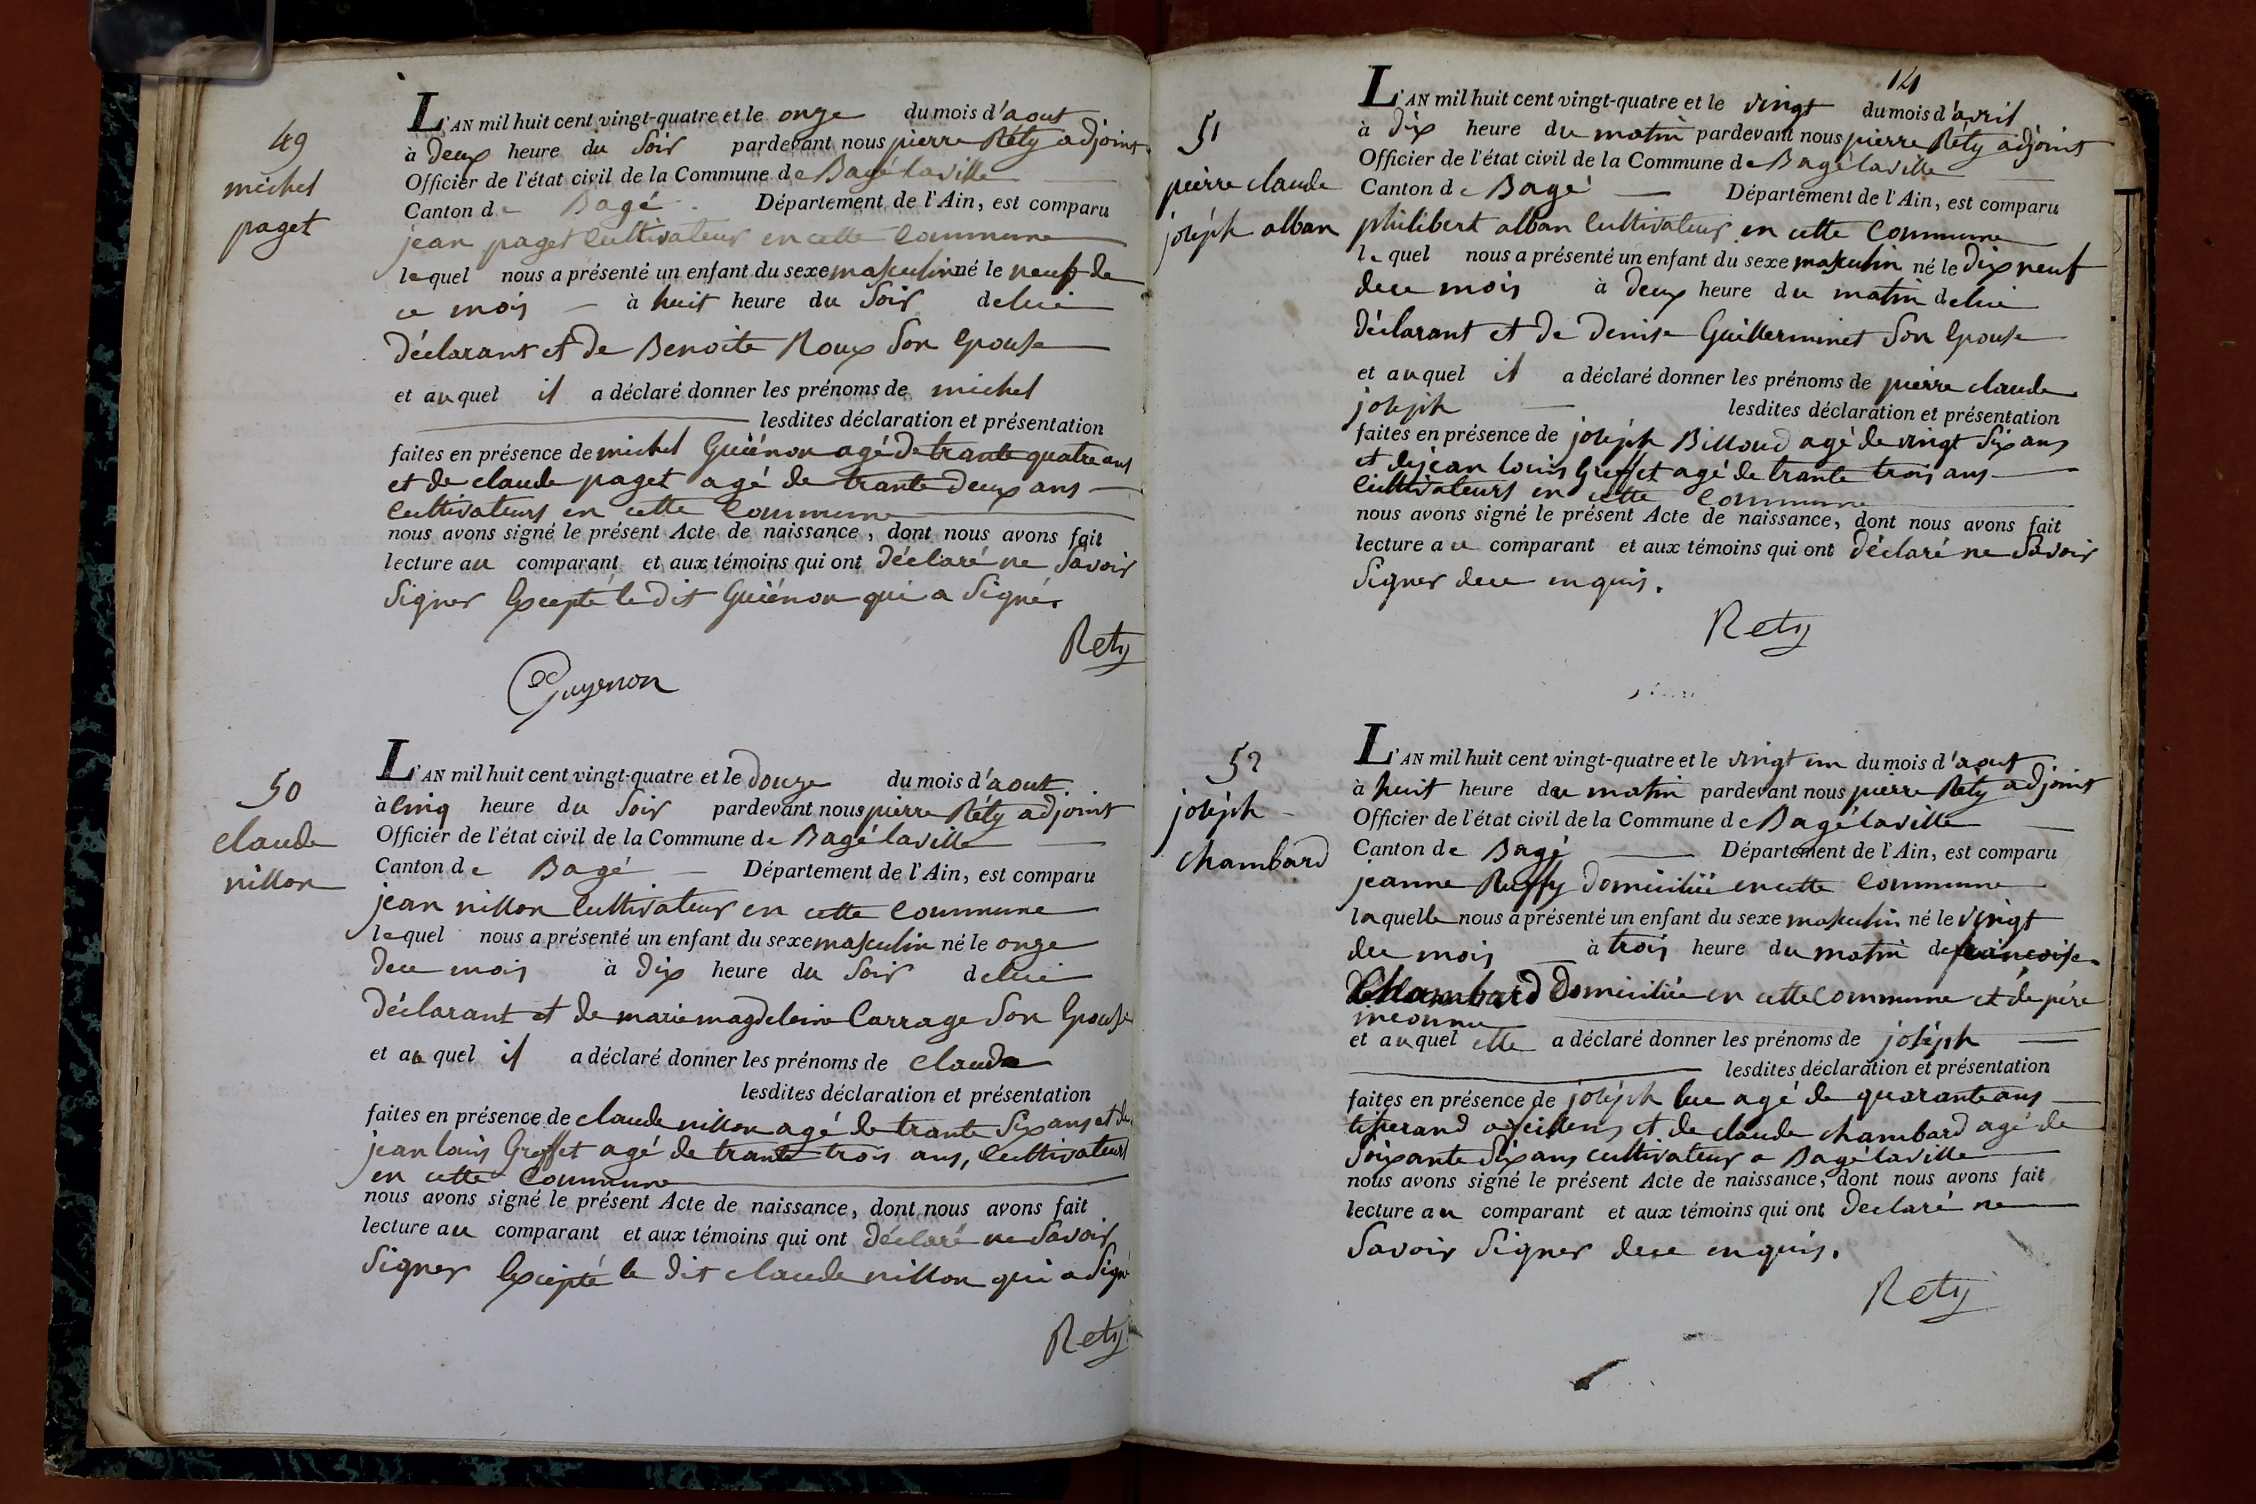 49
michel
paget
L'AN mil huit cent vingt-quatre et le onze du mois d'aout
à deux heure du soir pardevant nous pierre Réty adjoint
Officier de l'état civil de la Commune de Bagé laville
Canton de Bagé Département de l'Ain, est comparu
jean paget cultivateur en cette commune
lequel nous a présenté un enfant du sexe masculin né le neuf de
ce mois à huit heure du soir de lui
déclarant et de Benoite Roux son epouse
et auquel il a déclaré donner les prénoms de michel
lesdites déclaration et présentation
faites en présence de michel Guiénon agé de trante quatre ans
et de claude paget agé de trante deux ans
cultivateurs en cette commune
nous avons signé le présent Acte de naissance, dont nous avons fait
lecture au comparant et aux témoins qui ont déclaré ne savoir
signer Excepté le dit Guiénon qui a signé.
Rety
Guyenon
50
claude
nillon
L'AN mil huit cent vingt-quatre et le douze du mois d'aout
à cinq heure du soir pardevant nous pierre Réty adjoint
Officier de l'état civil de la Commune de Bagé laville
Canton de Bagé Département de l'Ain, est comparu
jean nillon cultivateur en cette commune
lequel nous a présenté un enfant du sexe masculin né le onze
de ce mois à dix heure du soir de lui
déclarant et de marie magdeleine Carrage son Epouse
et auquel il a déclaré donner les prénoms de claude
lesdites déclaration et présentation
faites en présence de claude nillon agé de trante six ans et de
jean louis Greffet agé de trante trois ans, cultivateurs
en cette commune
nous avons signé le présent Acte de naissance, dont nous avons fait
lecture au comparant et aux témoins qui ont déclaré ne savoir
signer Excepté le dit claude nillon qui a signé
Rety
14
51
pierre claude
joséph alban
L'AN mil huit cent vingt-quatre et le vingt du mois d'avril
à dix heure du matin pardevant nous pierre Réty adjoint
Officier de l'état civil de la Commune de Bagé laville
Canton de Bagé Département de l'Ain, est comparu
philibert alban cultivateur en cette commune
lequel nous a présenté un enfant du sexe masculin né le dix neuf
de ce mois à deux heure du matin de lui
déclarant et de denise Guillerminet son epouse
et auquel il a déclaré donner les prénoms de pierre claude
joséph lesdites déclaration et présentation
faites en présence de joséph Billoud agé de vingt six ans
et de jean louis Greffet agé de trante trois ans
cultivateurs en cette commune
nous avons signé le présent Acte de naissance, dont nous avons fait
lecture au comparant et aux témoins qui ont déclaré ne savoir
signer de ce enquis.
Rety
52
joséph
chambard
L'AN mil huit cent vingt-quatre et le vingt un du mois d'aout
à huit heure du matin pardevant nous pierre Réty adjoint
Officier de l'état civil de la Commune de Bagé laville
Canton de Bagé Département de l'Ain, est comparu
jeanne Ruffy domiciliée en cette commune
laquelle nous a présenté un enfant du sexe masculin né le vingt
du mois à trois heure du matin de françoise
Chambard domiciliée en cette commune et de père
inconnu
et auquel elle a déclaré donner les prénoms de joséph
lesdites déclaration et présentation
faites en présence de joséph luc agé de quarante ans
tisserand et de claude chambard agé de
soixante dix ans cultivateur a Bagé laville
nous avons signé le présent Acte de naissance, dont nous avons fait
lecture au comparant et aux témoins qui ont declaré ne
savoir signer de ce enquis.
Rety